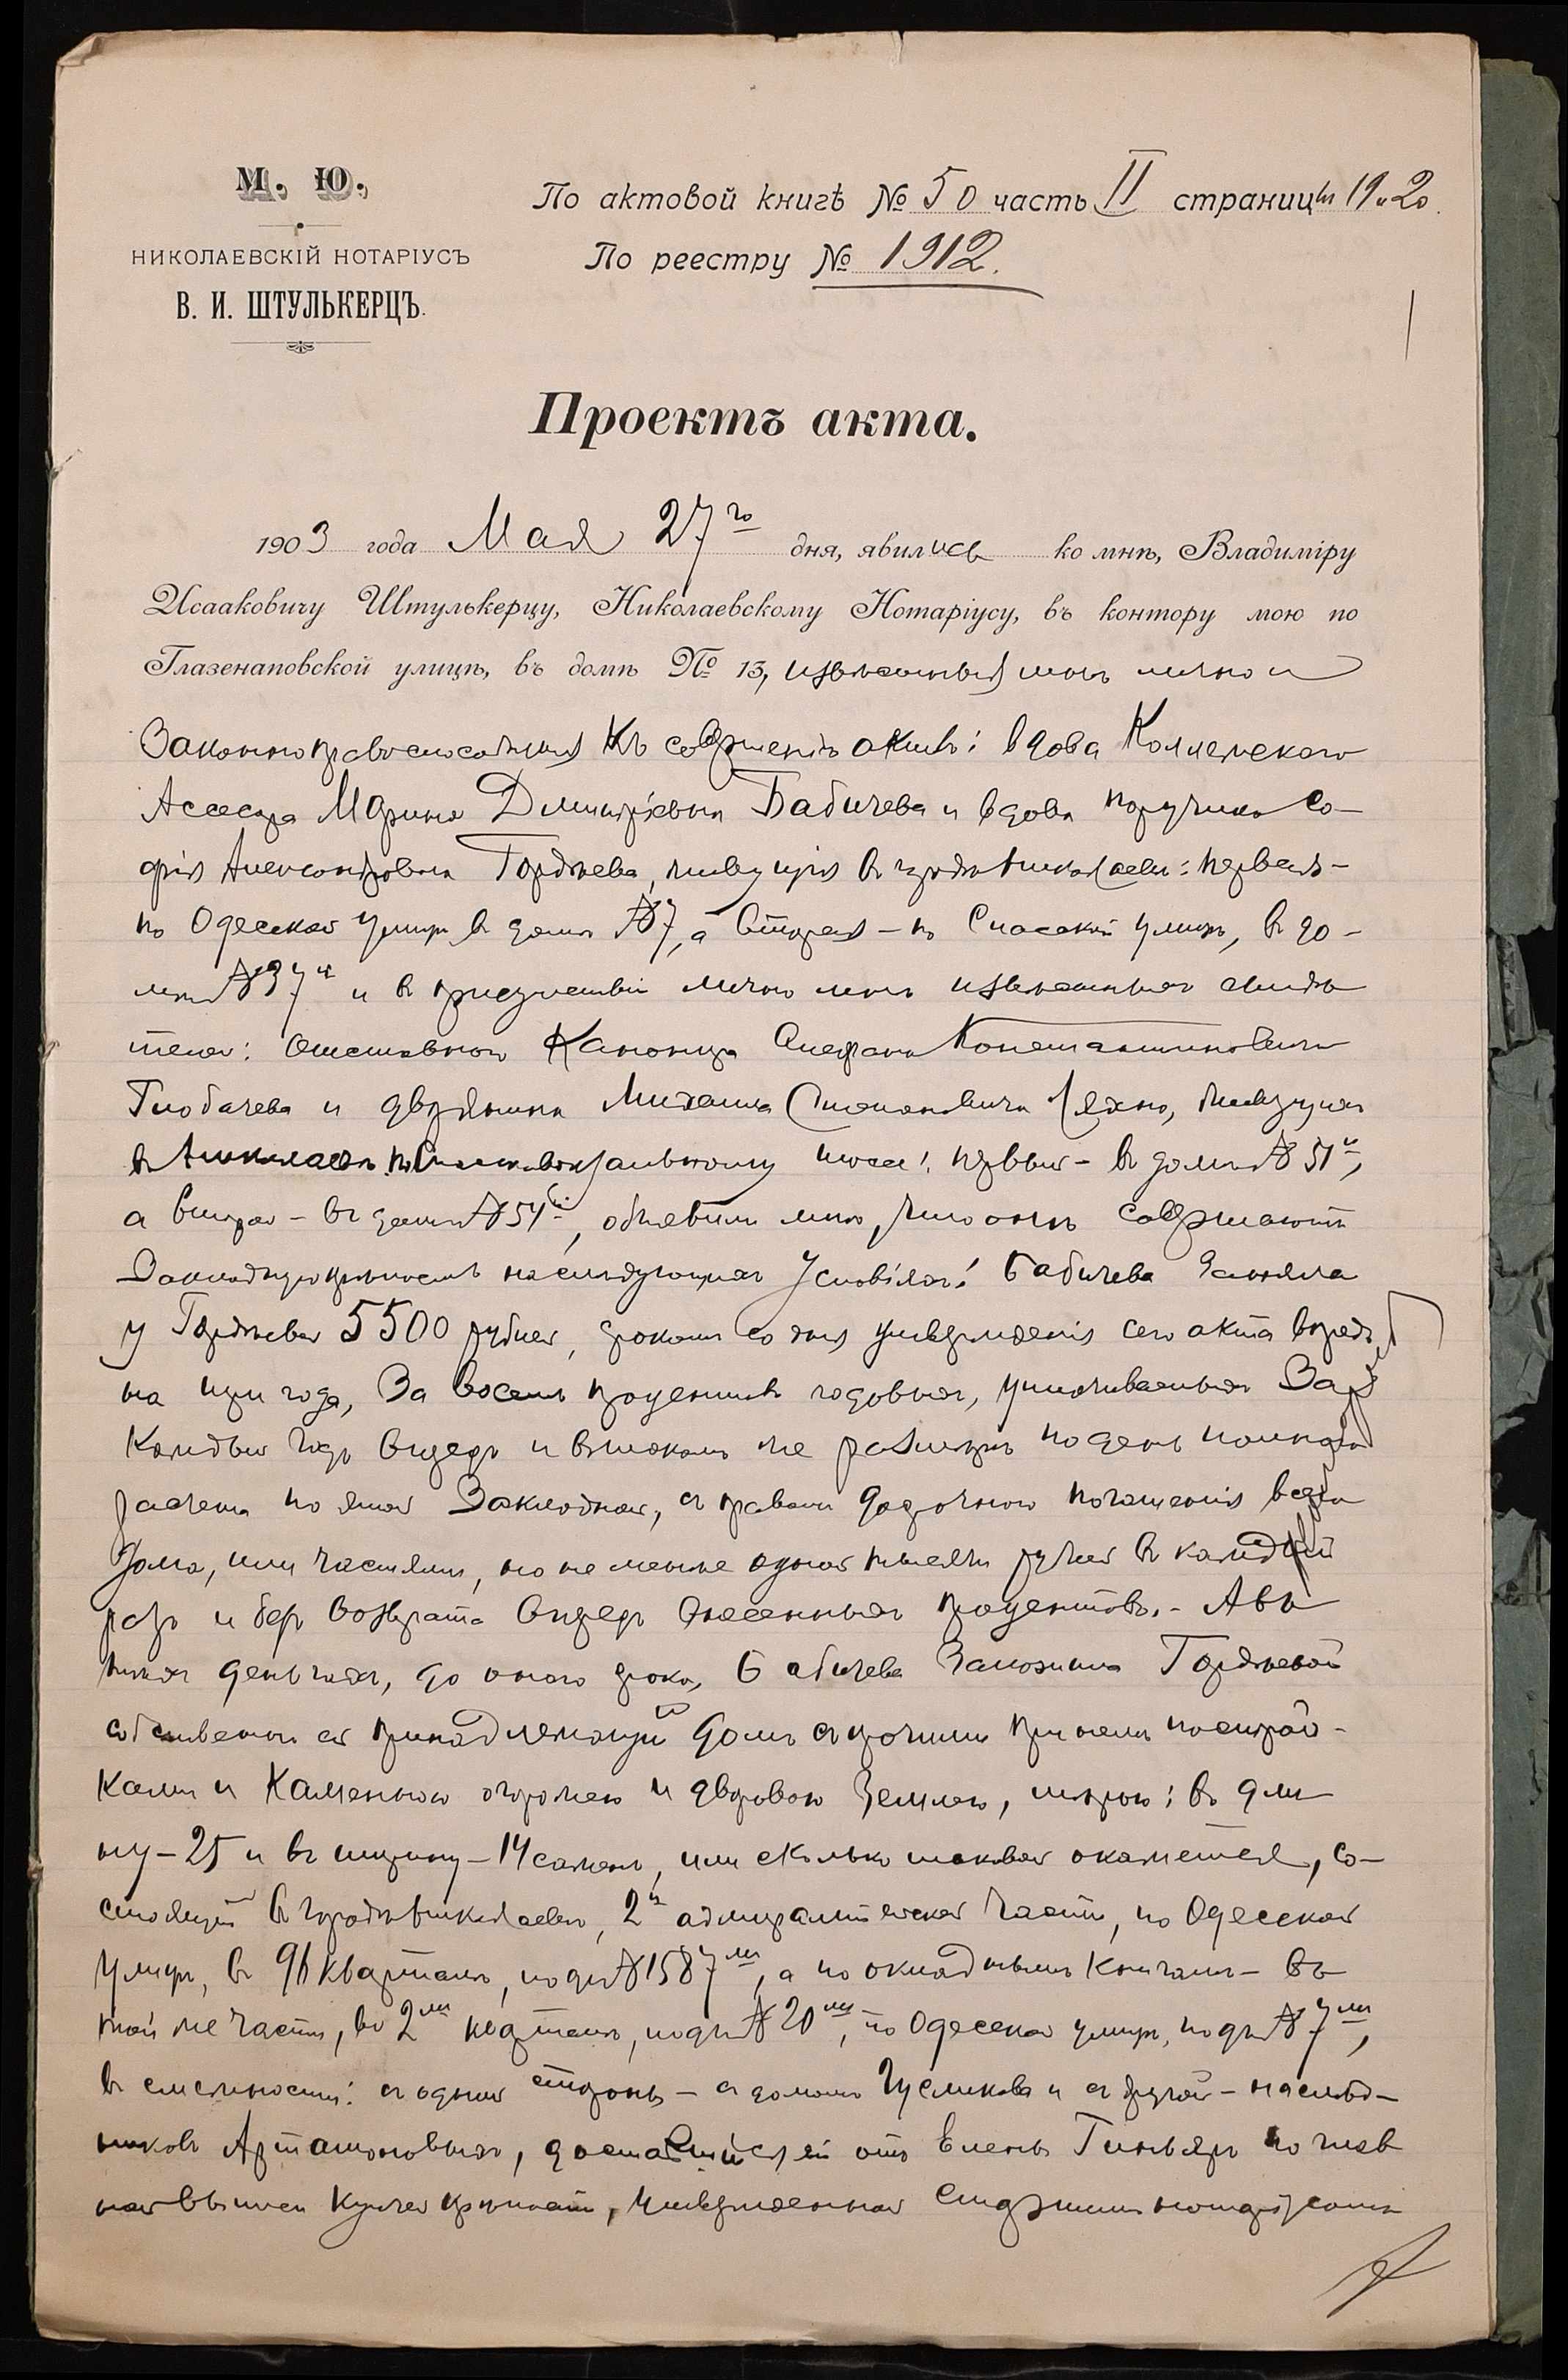 М. Ю.
НИКОЛАЕВСКІЙ НОТАРІУСЪ
В. И. ШТУЛЬКЕРЦЪ.
По актовой книгѣ № 50 часть II страницы 19 и 20.
По реестру № 1912.
Проектъ акта.
1903 года Мая 27го дня, явились ко мнѣ, Владиміру
Исааковичу Штулькерцу, Николаевскому Нотаріусу, въ контору мою по
Глазенаповской улицѣ, въ домѣ № 13, извѣстныя мнѣ лично и
законноправоспособныя къ совершенію актовъ: вдова Коллежскаго
Асесора Марина Дмитріевна Бабичева и вдова поручика Со-
фія Александровна Гордѣева, живущія въ городѣ Николаевѣ: первая-
по Одесской улицѣ въ домѣ №7, а вторая - по Спасской улицѣ, въ до-
мѣ №37й и въ присутствіи лично мнѣ извѣстныхъ свидѣ
телей: отставного Стефана Константиновича
Глобачева и дворянина Михаила Степановича живущихъ
въ Николаевѣ по шоссе: первый - въ домѣ № 51й,
а второй - въ домѣ №54й, объявили мнѣ, что онѣ совершаютъ
Закладную крѣпость на слѣдующихъ условіяхъ: Бабичева заняла
у Гордѣевой 5500 рублей, срокомъ со дня утвержденія сего акта впредь
на три года, за восемь процентовъ годовыхъ, уплачиваемыхъ за
каждый годъ впередъ и въ такомъ же размѣрѣ по день полнаго
расчета по этой Закладной, съ правомъ досрочнаго погашенія всего
долга, или частями, но не менѣе одной тысячи рублей въ каждый
разъ и безъ возврата впередъ внесенныхъ процентовъ. - А въ
тѣхъ деньгахъ, до оного срока, Бабичева заложила Гордѣевой
собственно ей принадлежащій домъ съ прочими при немъ построй-
ками и каменною огорожею и дворовою землею, мѣрою: въ дли
ну - 25 и въ ширину - 14 сажень, или сколько таковой окажется, со-
стоящій въ городѣ Николаевѣ, 2й адмиралтейской части, по Одесской
улицѣ, въ 96 кварталѣ, подъ №1587мъ, а по окладнымъ книгамъ - въ
той же части, во 2мъ кварталѣ, подъ №20мъ, по Одесской улицѣ, подъ №7мъ,
въ смежности: съ одной стороны - съ домомъ Гусликова и съ другой - наслѣд-
никовъ Артамоновыхъ, доставшійся ей отъ Елены по
выписи купчей крѣпости, утвержденной Старшимъ нотаріусомъ